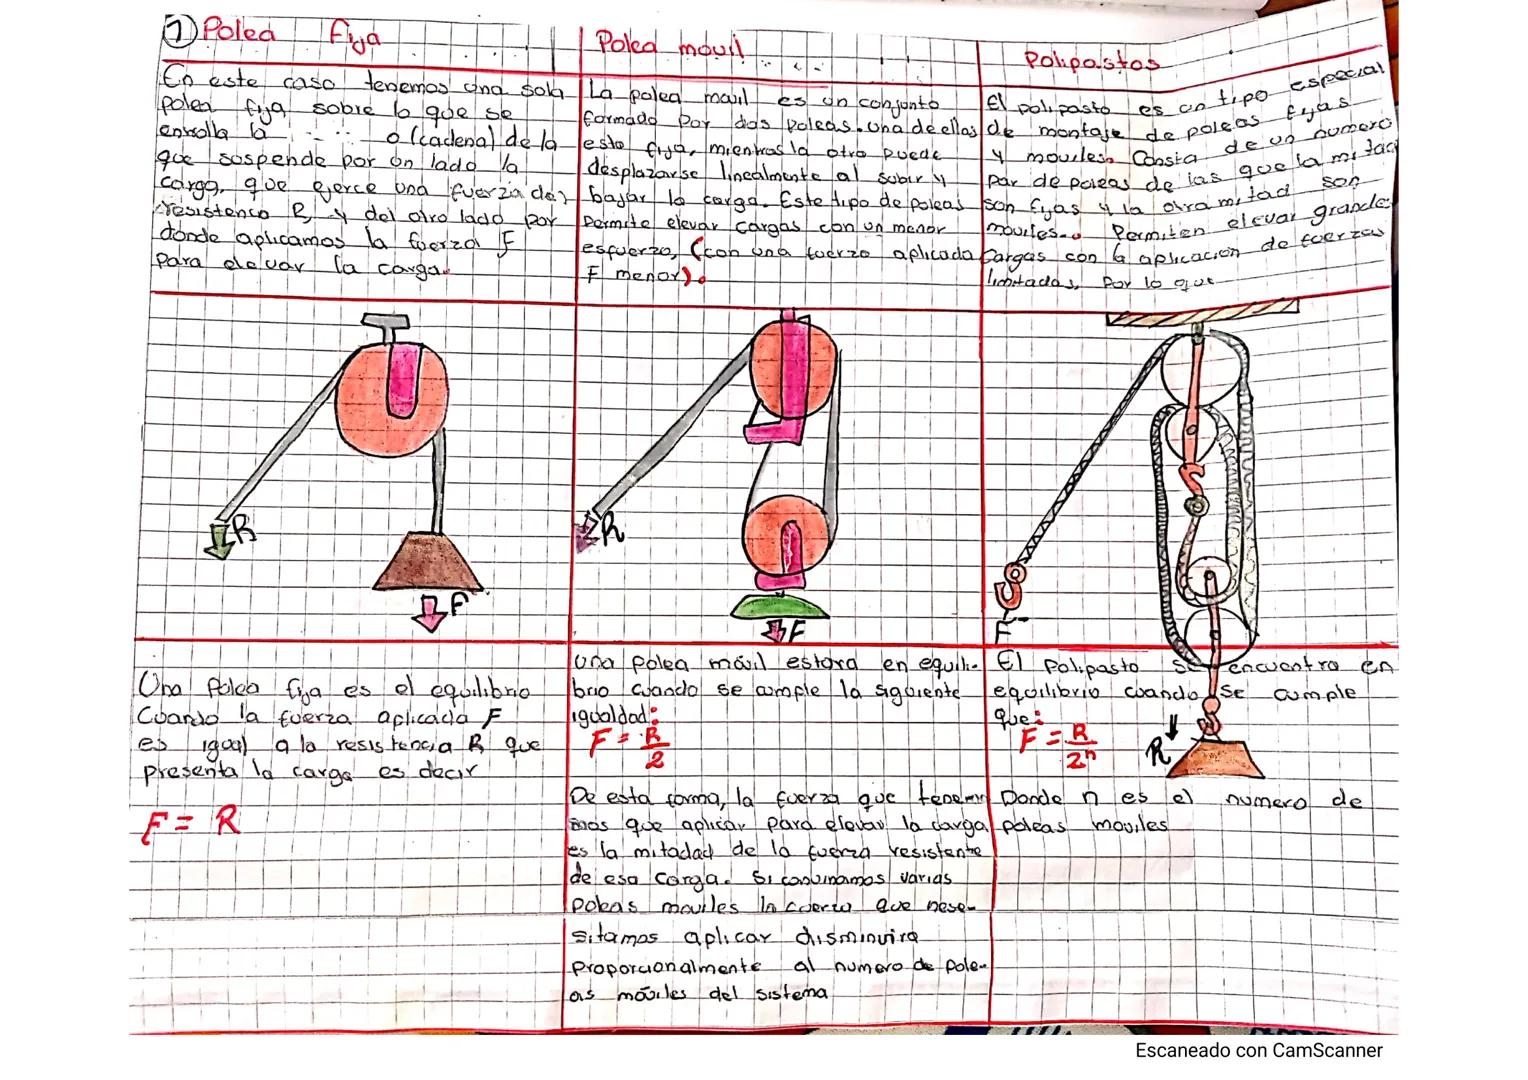 1 Polea fija
En este caso tenemos una sola
polea fija, sobre lo que se
enrolla la o (cadena) de la
que suspende por un lado la
carga, que ejerce una fuerza de
resistenca R, y del otro lado por
donde aplicamos la fuerza F
para elevar la carga.
R
F
Una Polea fija es el equilibrio
Cuando la fuerza aplicada F
es igual a la resistencia R que
presenta la carga es decir
F = R
Polea movil
La polea movil es un conjunto
formado por dos poleas. Una de ellas
esta fija, mientras la otra puede
desplazarse linealmente al subir y
bajar la carga. Este tipo de poleas
permite elevar cargas con un menor
esfuerzo, (con una fuerza aplicada
F menor).
R
F
Una polea móvil estara en equili-
brio cuando se cumple la siguiente
igualdad:
F = R
2
De esta forma, la fuerza que tenem
mos que aplicar para elevar la carga
es la mitadad de la fuerza resistente
de esa carga. Si convinamos varias
Poleas moviles la fuerza que nese-
sitamos aplicar disminuira
proporcionalmente al numero de pole-
as móviles del sistema
Polipastos
El polipasto es un tipo especial
de montaje de poleas fijas
y moviles. Consta de un numero
par de poleas de las que la mitad
son fijas y la otra mitad son
móviles. Permiten elevar grandes
cargas con la aplicacion de fuerzas
limitadas, Por lo que
F
El Polipasto se encuentra en
equilibrio cuando se cumple
que:
F = R
2ⁿ
R
Donde n es el numero de
poleas moviles
Escaneado con CamScanner